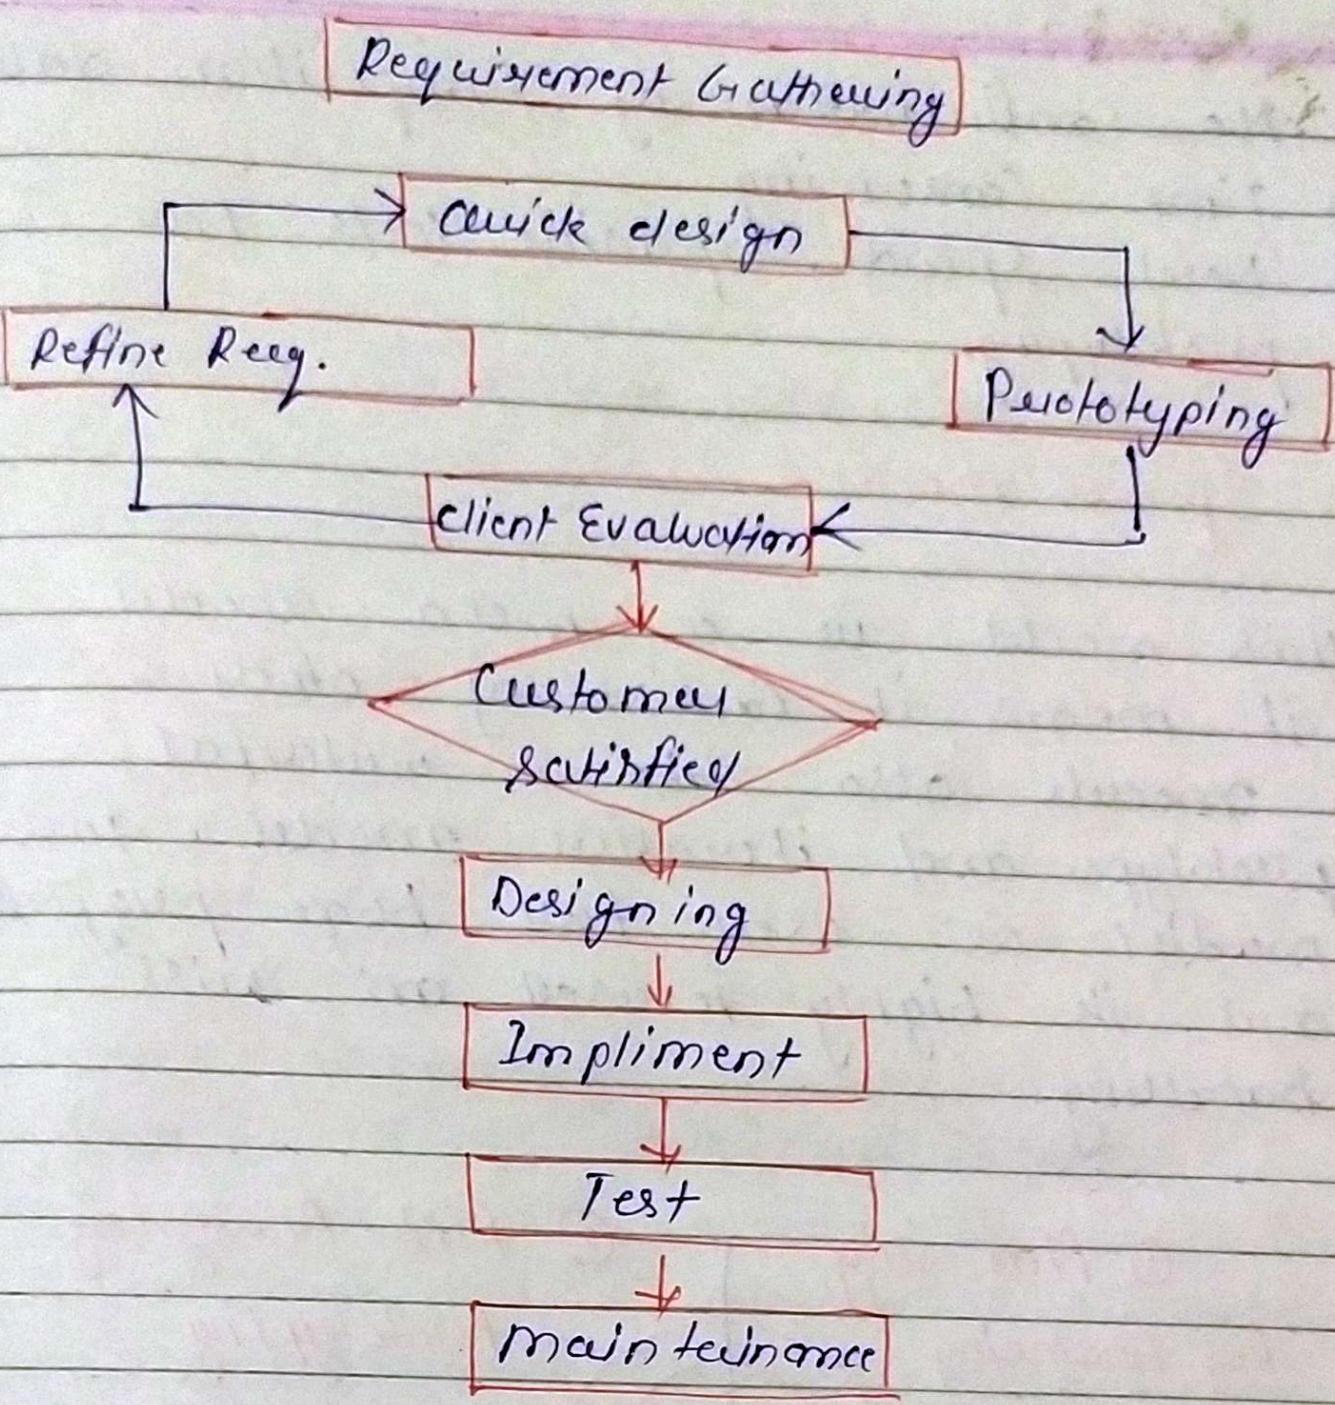 Requirement Gathering
Quick design
Refine Req.
Prototyping
Client Evaluation
Customer
satisfied
Designing
Impliment
Test
Mainteinance